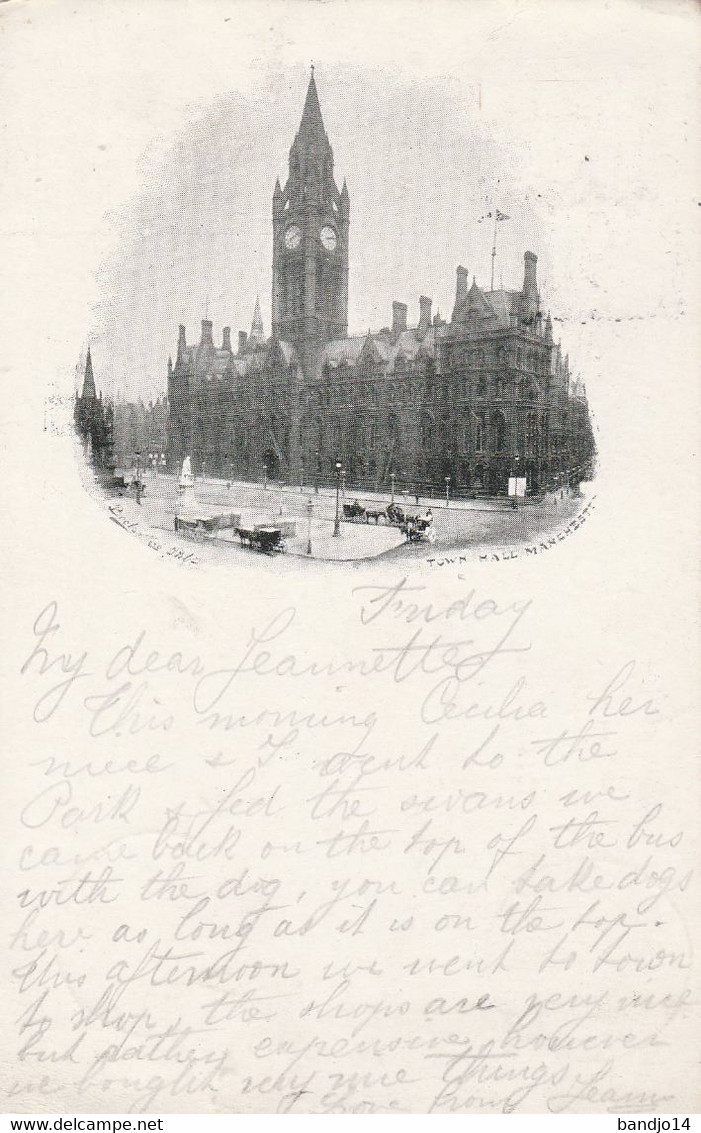 TOWN HALL MANCHESTER
Friday
My dear Jeannette
This morning Cecilia her
niece & I went to the
Park & fed the swans we
came back on the top of the bus
with the dog, you can take dogs
here as long as it is on the top.
This afternoon we went to town
to shop, the shops are very nice
but rather expensive, however
we bought very nice things
Love from
bandjo14